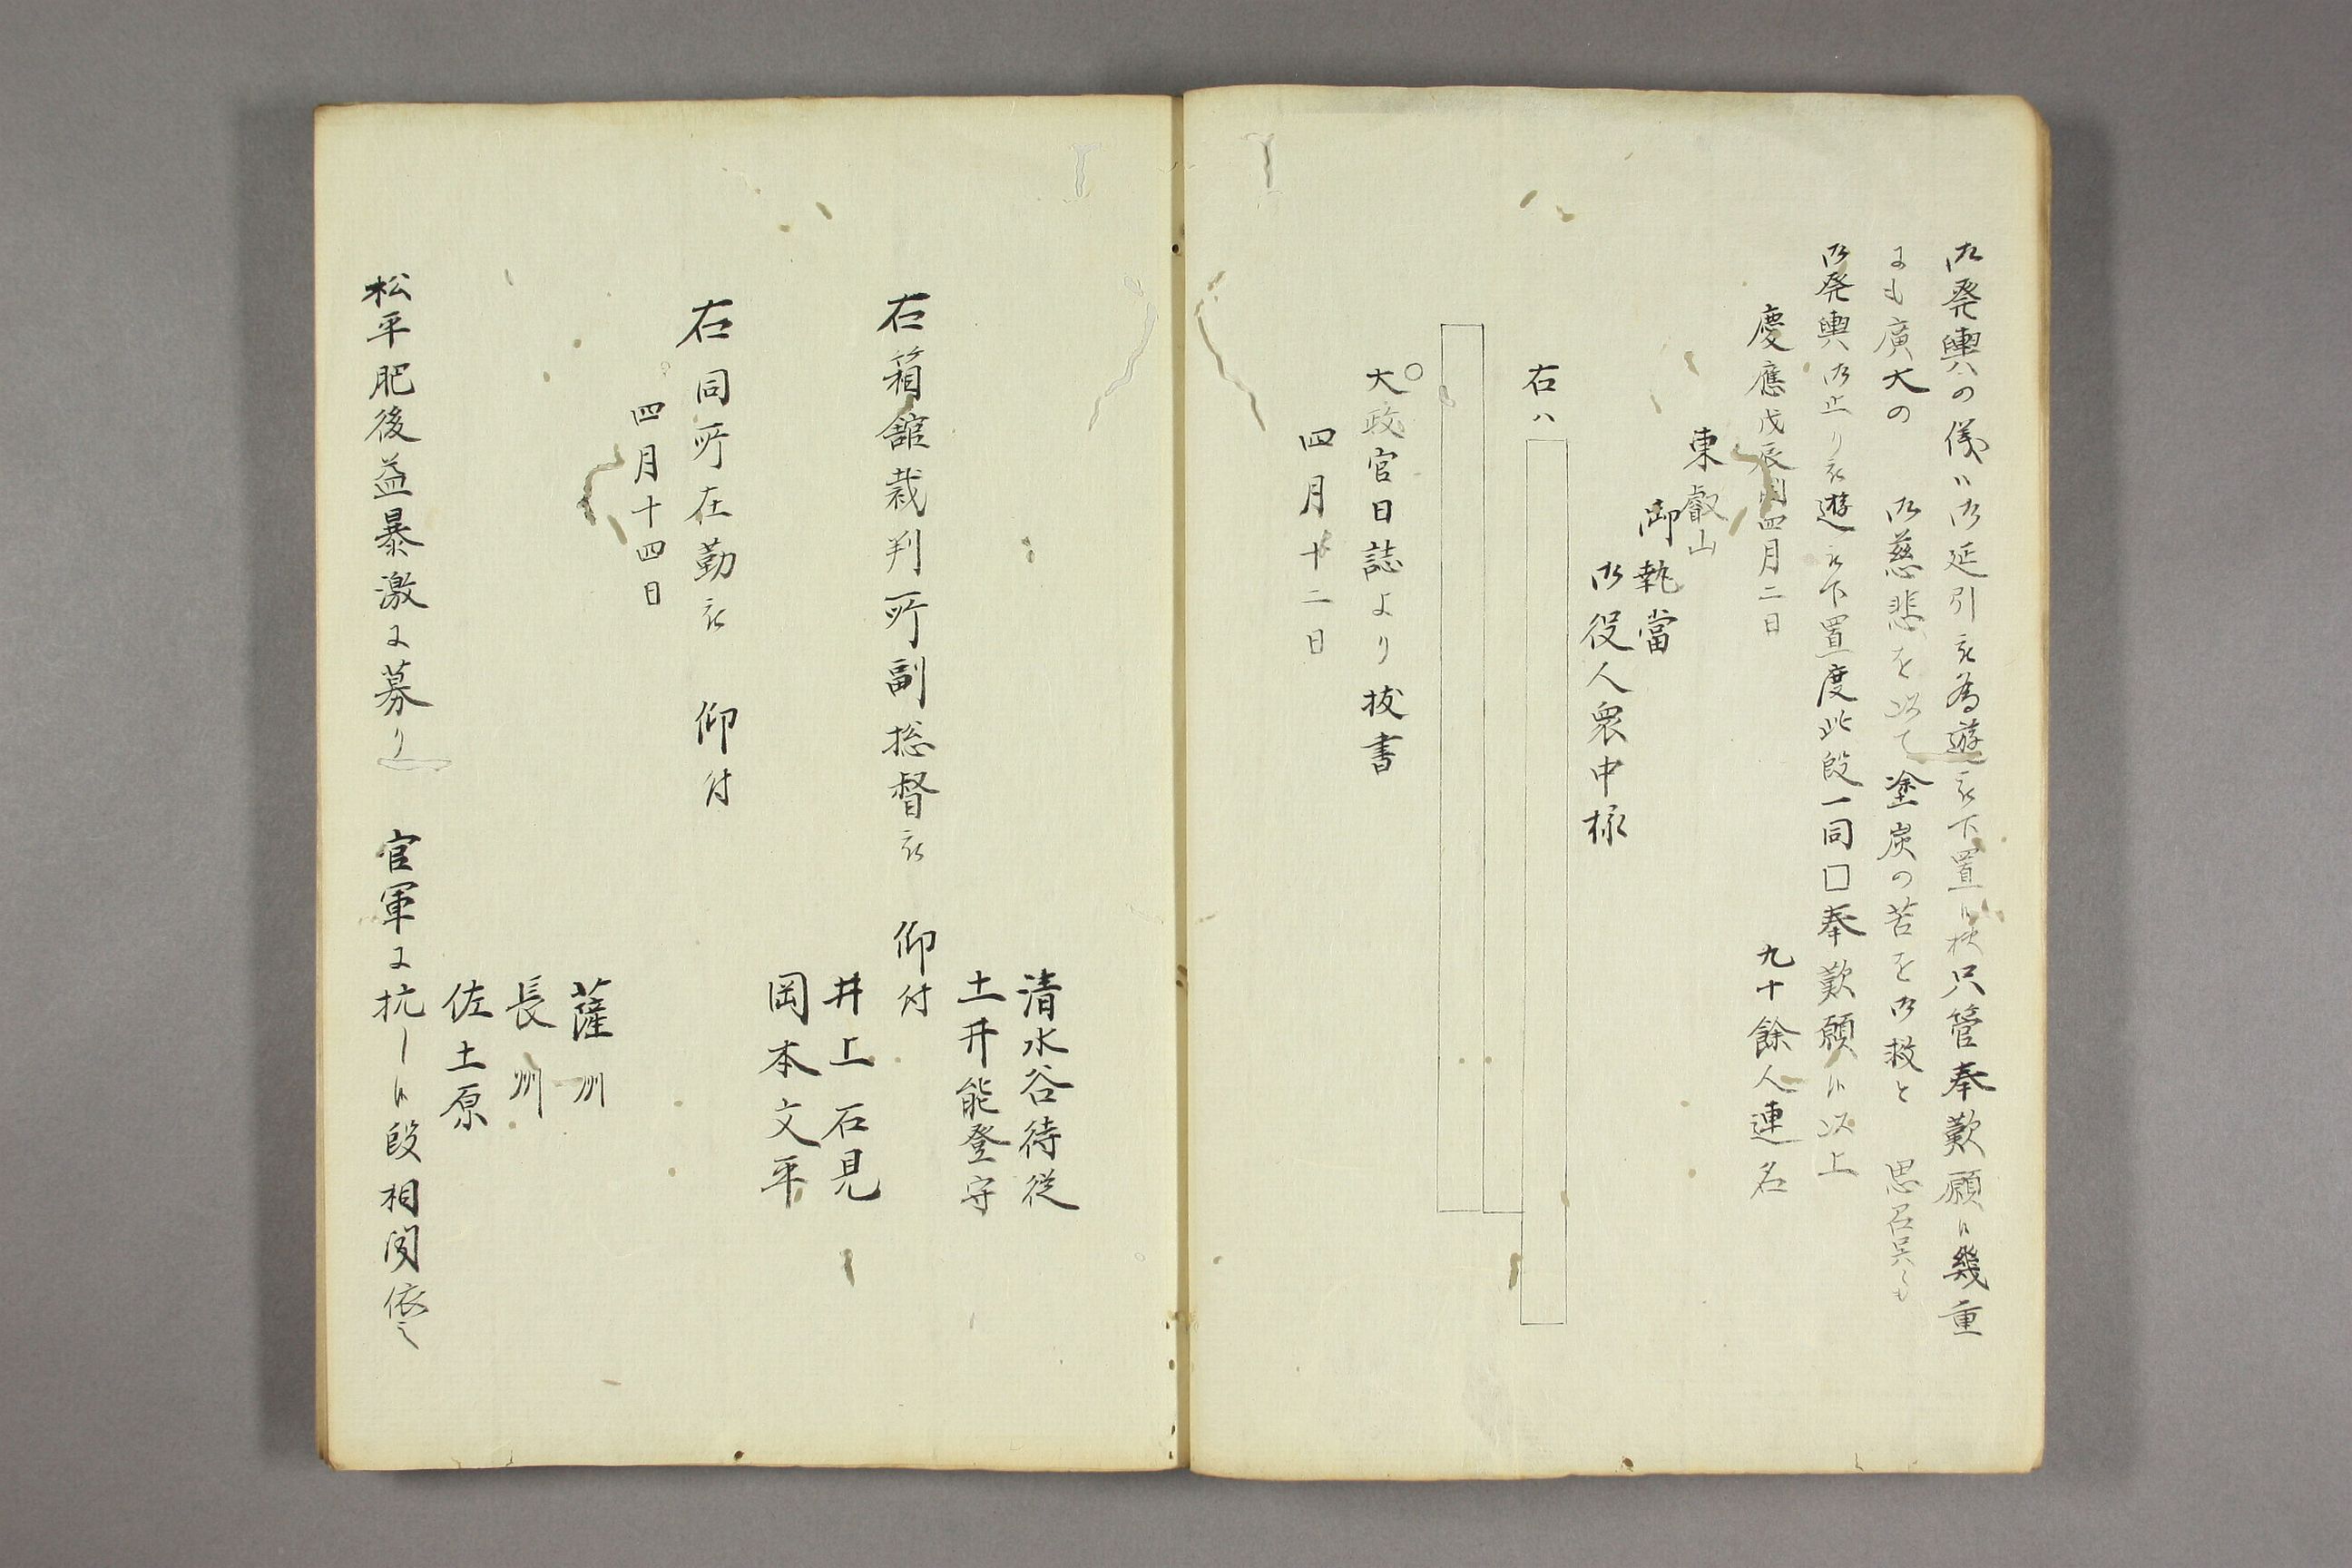 御発輿の儀ハ御延引被為遊被下置候様只管奉歎願候幾重
にも廣大の　御慈悲を以て塗炭の苦を御救と　思召呉々も
御発輿御止り被遊被下置度此段一同□奉歎願候以上
慶應戊辰閏四月二日
九十餘人連名
東叡山
御執當
御役人衆中様
右ハ
○大政官日誌より抜書
四月十二日
清水谷待従
土井能登守
右箱舘裁判所副総督被　仰付
井上石見
岡本文平
右同所在勤被　仰付
四月十四日
薩州
長州
佐土原
松平肥後益暴激に募り　官軍に抗し候段相聞依之